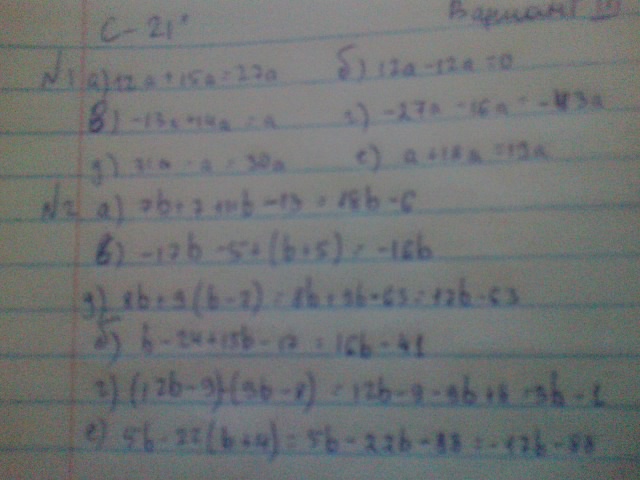 С - 21 Вариант III
№1 а) 12а + 15а = 27а б) 12а - 12а = 0
в) -13а + 14а = а г) -27а - 16а = -43а
д) 31а - а = 30а е) а + 18а = 19а
№2 а) 7b + 7 + 11b - 13 = 18b - 6
в) -17b - 5 + (b + 5) = -16b
д) 8b + 9(b - 7) = 8b + 9b - 63 = 17b - 63
б) b - 24 + 15b - 17 = 16b - 41
г) (12b - 9) - (9b - 8) = 12b - 9 - 9b + 8 = 3b - 1
е) 5b - 22(b + 4) = 5b - 22b - 88 = -17b - 88